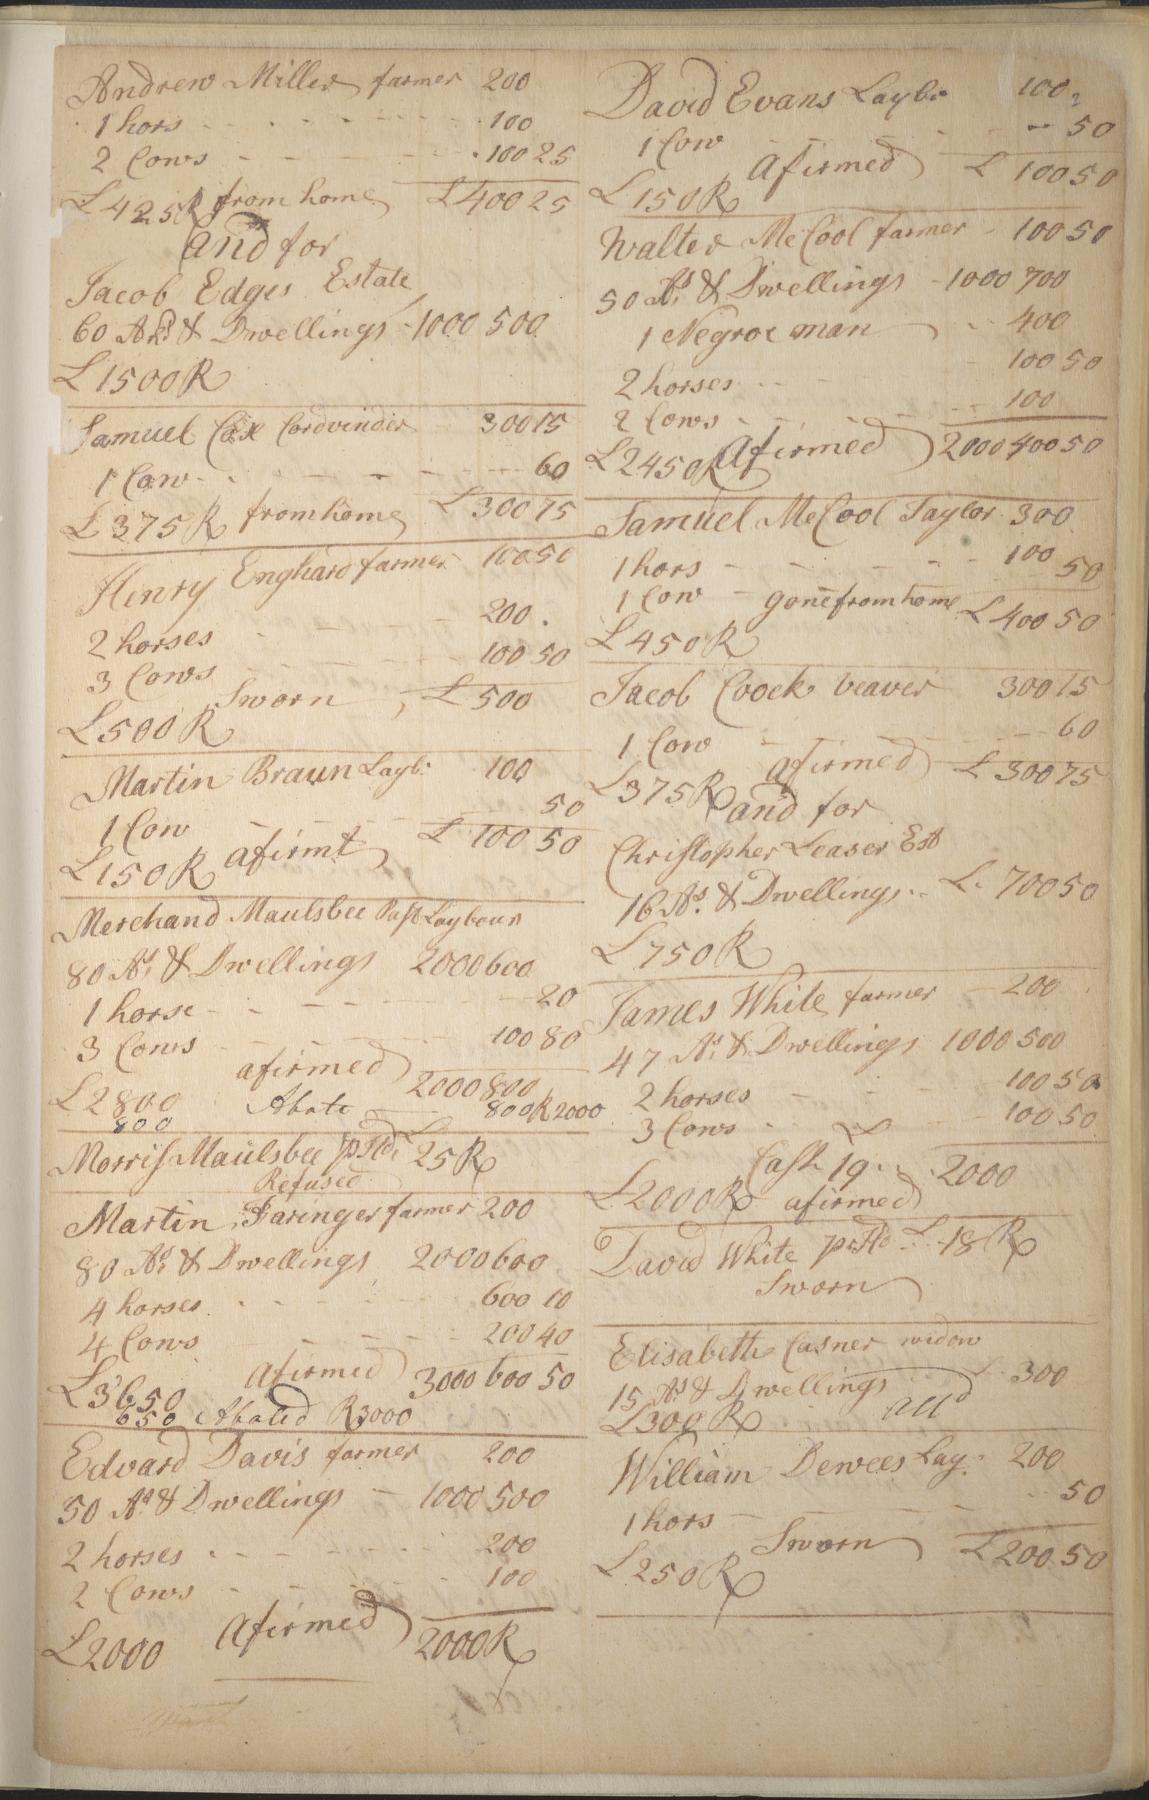 Andrew Miller farmer 200
1 hors 100
2 Cows 100 25
£425 R from home £400 25
and for
Jacob Edges Estate
60 Ars & Dwellings 1000 500
£1500 R
Samuel Cox Cordvinder 300 15
1 Cow 60
£375 R from home £300 75
Henry Enghard farmer 100 50
2 horses 200
3 Cows 100 50
Sworn £500
£500 R
Martin Braun Laybr 100
1 Cow 50
£150 R afirmt £100 50
Merchand Maulsbee Past Laybour
80 As & Dwellings 2000 600
1 horse 20
3 Cows 100 80
afirmed 2000 800
£2800 Abate 800 R 2000
800
Morris Maulsbee pr Hd £25 R
Refused
Martin Faringer farmer 200
80 As & Dwellings 2000 600
4 horses 600 10
4 Cows 200 40
£3650 afirmed 3000 600 50
650 Abated R 3000
Edvard Davis farmer 200
50 As & Dwellings 1000 500
2 horses 200
2 Cows 100
£2000 afirmed 2000 R
David Evans Laybr 100
1 Cow 50
£150 R afirmed £100 50
Walter McCool farmer 100 50
50 As & Dwellings 1000 700
1 Negroe man 400
2 horses 100 50
2 Cows 100
£2450 R afirmed 2000 400 50
Samuel McCool Taylor 300
1 hors 100
1 Cow gone from home 50
£450 R £400 50
Jacob Coock veaver 300 15
1 Cow 60
£375 R afirmed £300 75
and for
Christopher Leaser Est
16 As & Dwellings £700 50
£750 R
James White farmer 200
47 As & Dwellings 1000 500
2 horses 100 50
3 Cows 100 50
Cash 19 2000
£2000 R afirmed
David White pr Hd £18 R
Sworn
Elisabeth Casner widow
15 As & Dwellings £300
£300 R aff
William Dewees Lay 200
1 hors 50
£250 R Sworn £200 50